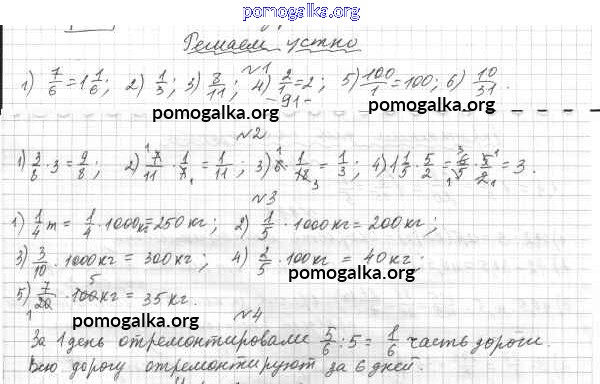 pomogalka.org
Решаем устно
№1
1) 7/6 = 1 1/6; 2) 1/3; 3) 8/11; 4) 2/1 = 2; 5) 100/1 = 100; 6) 10/31.
-91-
pomogalka.org
№2
1) 3/8 · 3 = 9/8; 2) 7/11 · 1/7 = 1/11; 3) 6 · 1/18 = 1/3; 4) 1 1/5 · 5/2 = 6/5 · 5/2 = 3.
pomogalka.org
№3
1) 1/4 т = 1/4 · 1000кг = 250 кг; 2) 1/5 · 1000 кг = 200 кг;
3) 3/10 · 1000 кг = 300 кг; 4) 2/5 · 100 кг = 40 кг;
pomogalka.org
5) 7/20 · 100 кг = 35 кг.
№4
pomogalka.org
За 1 день отремонтировали 5/6 : 5 = 1/6 часть дороги.
Всю дорогу отремонтируют за 6 дней.
pomogalka.org